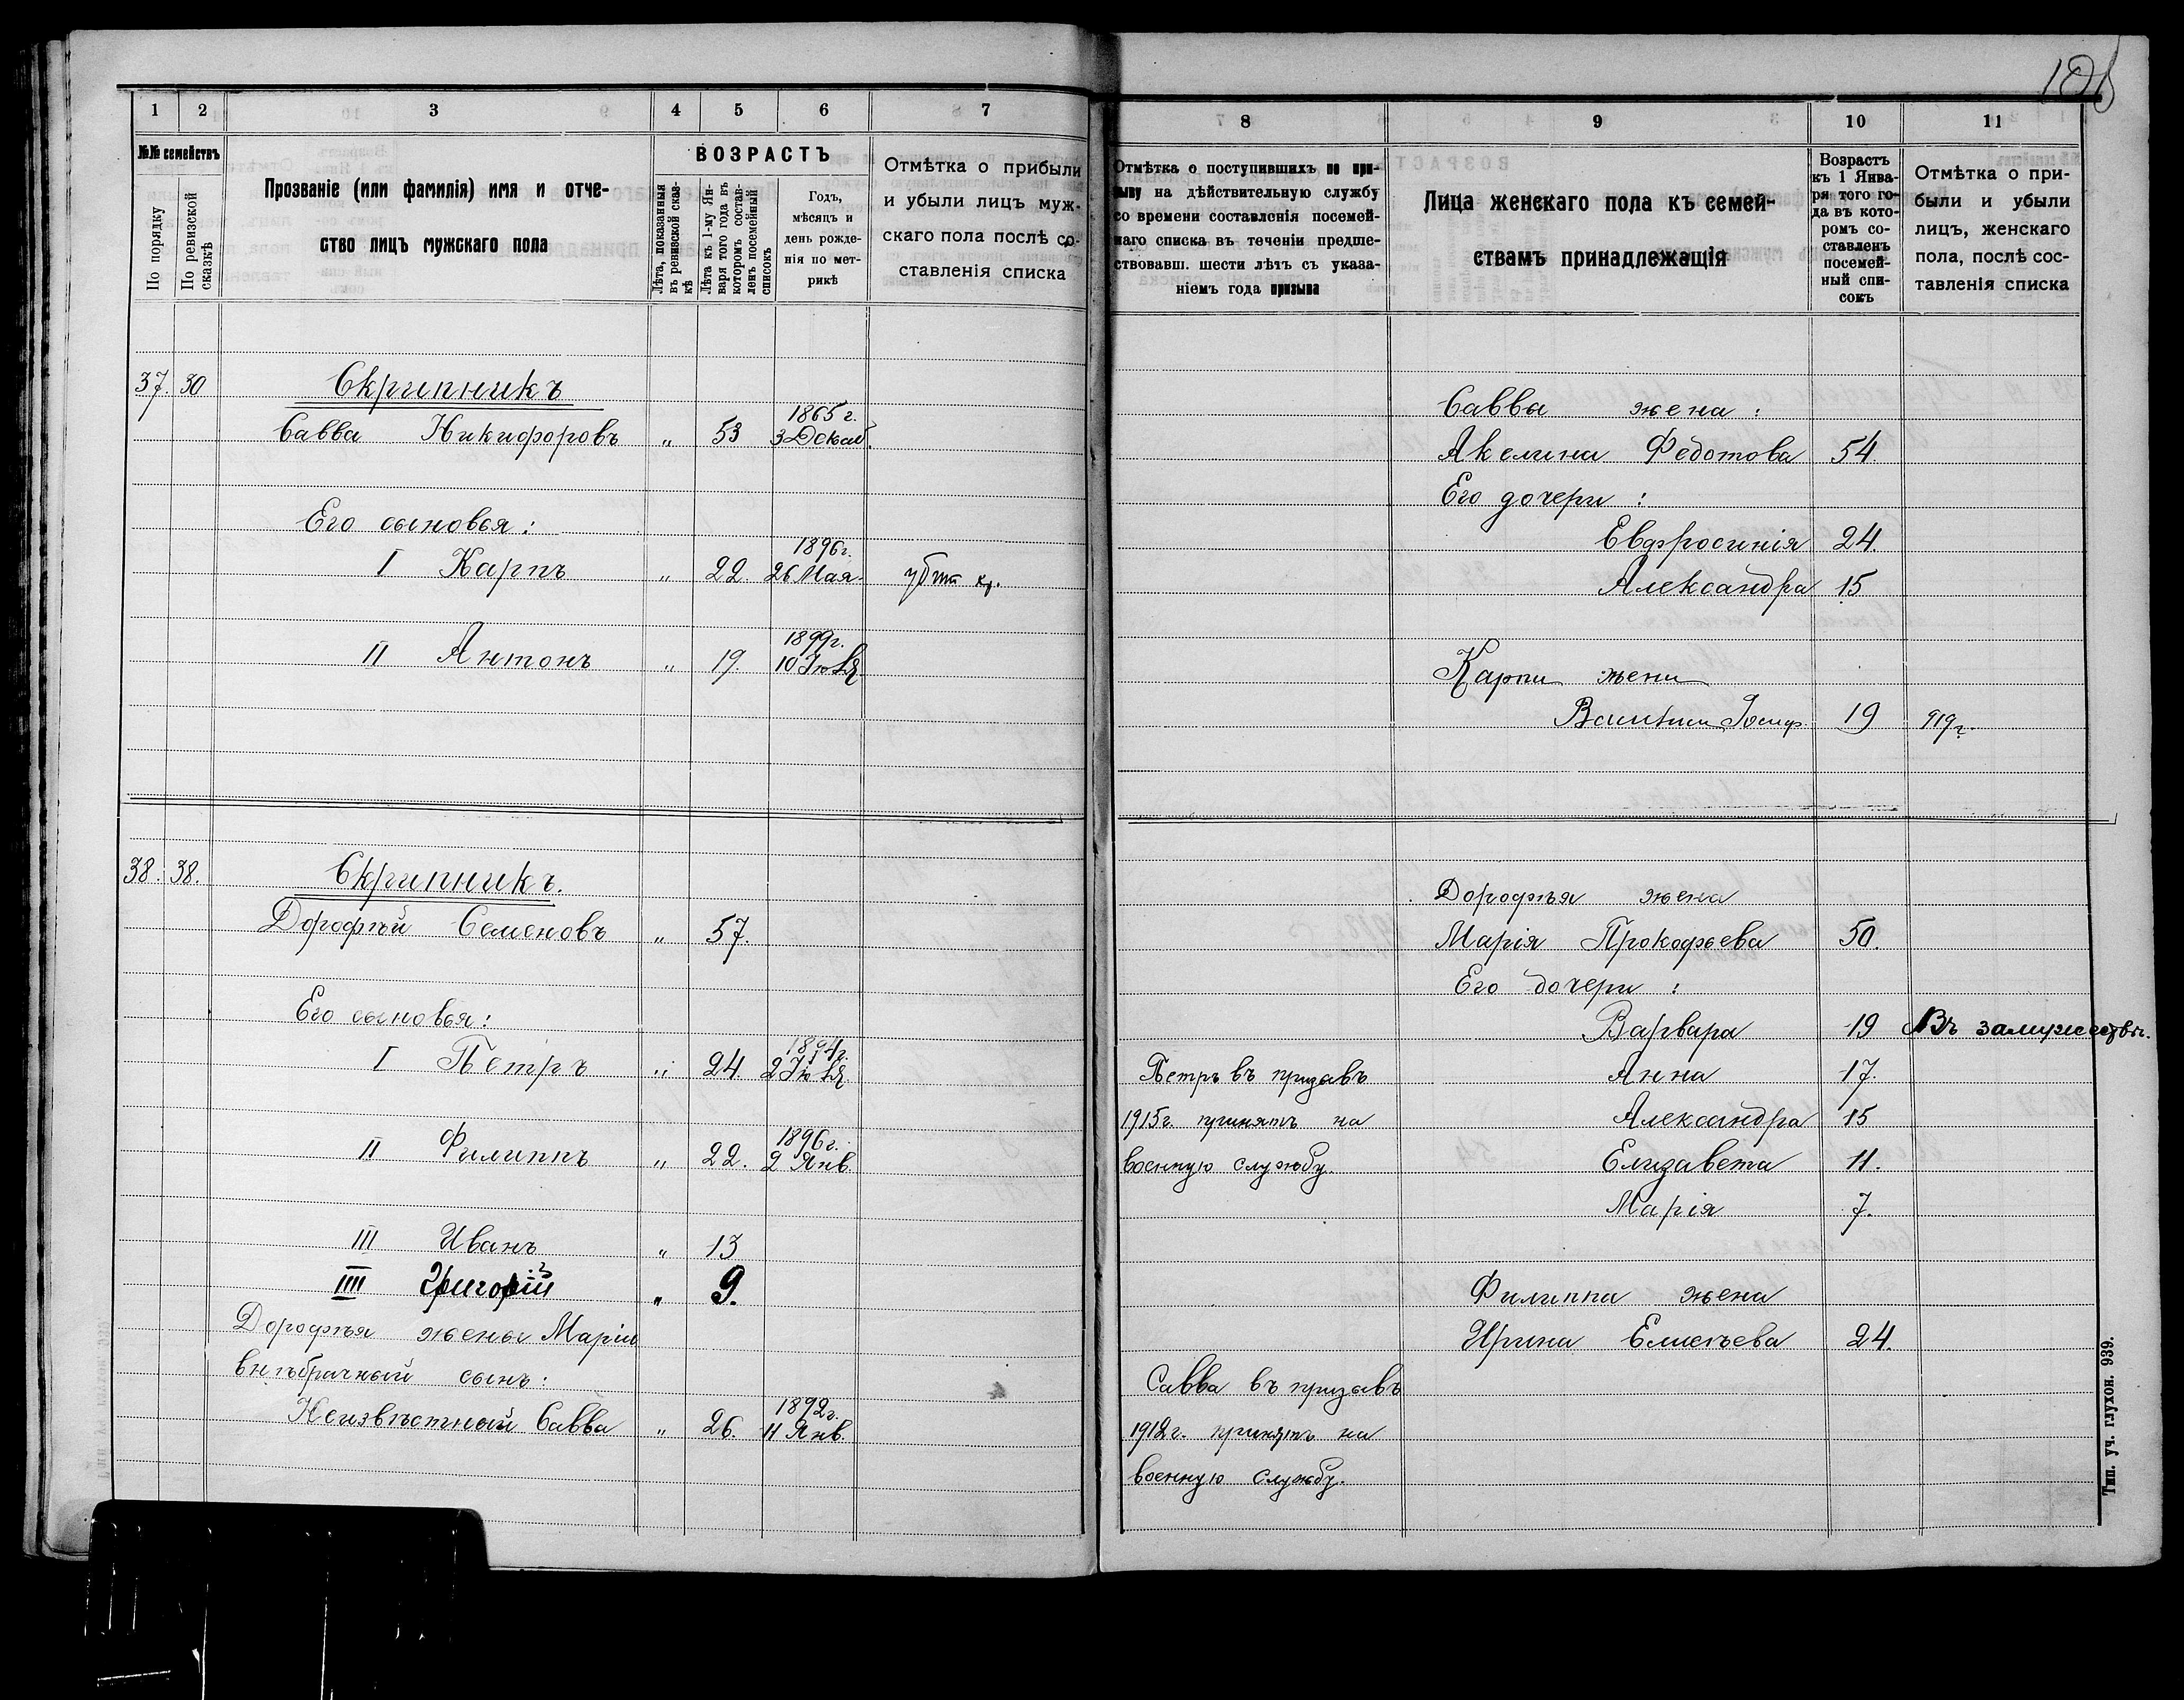 101
1 2 3 4 5 6 7
№№ семействъ
По порядку
По ревизской сказкѣ
Прозваніе (или фамилія) имя и отче-
ство лицъ мужскаго пола
ВОЗРАСТЪ
Лѣта, показанныя
въ ревизской сказ-
кѣ
Лѣта къ 1-му Ян-
варя того года въ
которомъ состав-
ленъ посемейный
списокъ
Годъ,
мѣсяцъ и
день рожде-
нія по мет-
рикѣ
Отмѣтка о прибыли
и убыли лицъ муж-
скаго пола послѣ со-
ставленія списка
37. 30 Скрипникъ
1865 г.
Савва Никифоровъ „ 53 3 Декаб.
Его сыновья:
1896 г.
I Карпъ „ 22. 26 Мая
1899 г.
II Антонъ „ 19. 10 Іюля
38. 38. Скрипникъ.
Дорофѣй Семеновъ „ 57.
Его сыновья:
1894 г.
I Петръ „ 24 2 Іюля
1896 г.
II Филиппъ „ 22. 2 Янв.
III Иванъ „ 13
IIII Григорій „ 9.
Дорофѣя жены Маріи
внѣбрачный сынъ:
1892 г.
Неизвѣстный Савва „ 26. 11 Янв.
8 9 10 11
Отмѣтка о поступившихъ по при-
зыву на дѣйствительную службу
со времени составленія посемей-
наго списка въ теченіи предше-
ствовавш. шести лѣтъ съ указа-
ніемъ года призыва
Лица женскаго пола къ семей-
ствамъ принадлежащія
Возрастъ
къ 1 Янва-
ря того го-
да въ кото-
ромъ со-
ставленъ
посемей-
ный спи-
сокъ
Отмѣтка о при-
были и убыли
лицъ, женскаго
пола, послѣ сос-
тавленія списка
Саввы жена:
Акелина Федотова 54.
Его дочери:
Евфросинія 24.
Александра 15
Карпа жена
19 919 г.
Дорофѣя жена
Марія Прокофьева 50.
Его дочери:
Варвара 19 Въ замужествѣ.
Петръ въ призывъ Анна 17.
1915 г. принятъ на Александра 15
военную службу. Елизавета 11.
Марія 7.
Филиппа жена
Ирина Елисѣева 24.
Савва въ призывъ
1912 г. принятъ на
военную службу.
Тип. уч. глухон. 939.